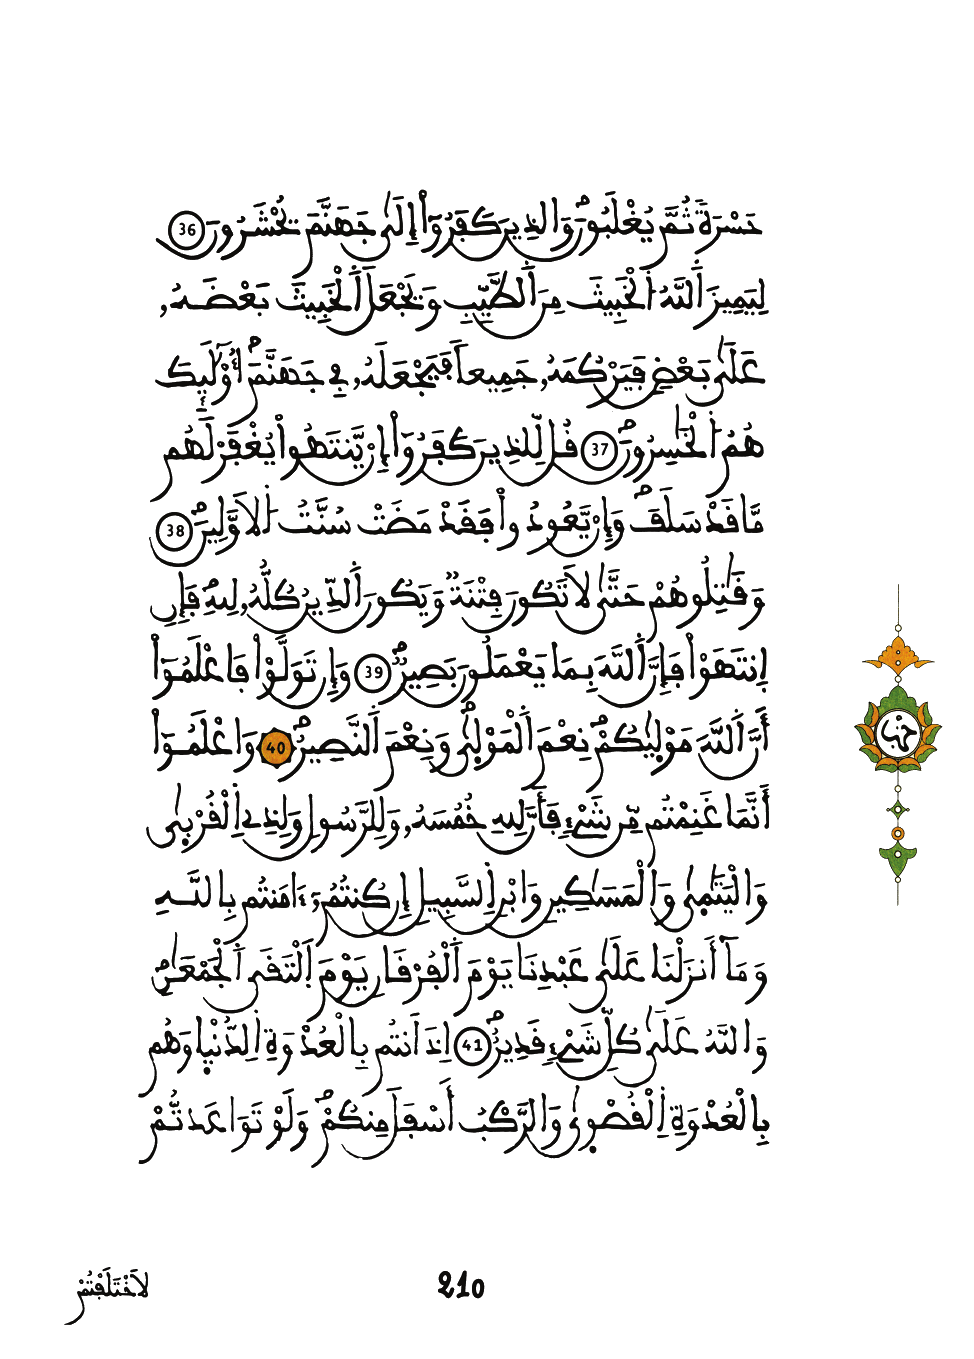 حَسْرَةٗ ثُمَّ يُغْلَبُونَۖ وَالذِينَ كَفَرُوٓاْ إِلَىٰ جَهَنَّمَ يُحْشَرُونَ 36
لِيَمِيزَ اَ۬للَّهُ اُ۬لْخَبِيثَ مِنَ اَ۬لطَّيِّبِ وَيَجْعَلَ اَ۬لْخَبِيثَ بَعْضَهُۥ
عَلَىٰ بَعْضٖ فَيَرْكُمَهُۥ جَمِيعاٗ فَيَجْعَلَهُۥ فِي جَهَنَّمَۖ أُوْلَٰٓئِكَ
هُمُ اُ۬لْخَٰسِرُونَۖ 37 قُل لِّلذِينَ كَفَرُوٓاْ إِنْ يَّنتَهُواْ يُغْفَرْ لَهُم
مَّا قَدْ سَلَفَۖ وَإِنْ يَّعُودُواْ فَقَدْ مَضَتْ سُنَّتُ اُ۬لَاوَّلِينَۖ 38
وَقَٰتِلُوهُمْ حَتَّىٰ لَا تَكُونَ فِتْنَةٞ وَيَكُونَ اَ۬لدِّينُ كُلُّهُۥ لِلهِۖ فَإِنِ
اِ۪نتَهَوْاْ فَإِنَّ اَ۬للَّهَ بِمَا يَعْمَلُونَ بَصِيرٞۖ 39 وَإِن تَوَلَّوْاْ فَاعْلَمُوٓاْ
أَنَّ اَ۬للَّهَ مَوْل۪يٰكُمْۖ نِعْمَ اَ۬لْمَوْل۪يٰۖ وَنِعْمَ اَ۬لنَّصِيرُۖ 40 وَاعْلَمُوٓاْ
أَنَّمَا غَنِمْتُم مِّن شَےْءٖ فَأَنَّ لِلهِ خُمُسَهُۥ وَلِلرَّسُولِ وَلِذِے اِ۬لْقُرْب۪يٰ
وَالْيَتَٰم۪يٰ وَالْمَسَٰكِينِ وَابْنِ اِ۬لسَّبِيلِ إِن كُنتُمُۥٓ ءَامَنتُم بِاللَّهِ
وَمَآ أَنزَلْنَا عَلَىٰ عَبْدِنَا يَوْمَ اَ۬لْفُرْقَانِ يَوْمَ اَ۪لْتَقَى اَ۬لْجَمْعَٰنِۖ
وَاللَّهُ عَلَىٰ كُلِّ شَےْءٖ قَدِيرٌۖ 41 اِذَ اَنتُم بِالْعُدْوَةِ اِ۬لدُّنْي۪ا وَهُم
بِالْعُدْوَةِ اِ۬لْقُصْو۪يٰ وَالرَّكْبُ أَسْفَلَ مِنكُمْۖ وَلَوْ تَوَاعَدتُّمْ
حزب
210
لَاخْتَلَفْتُمْ